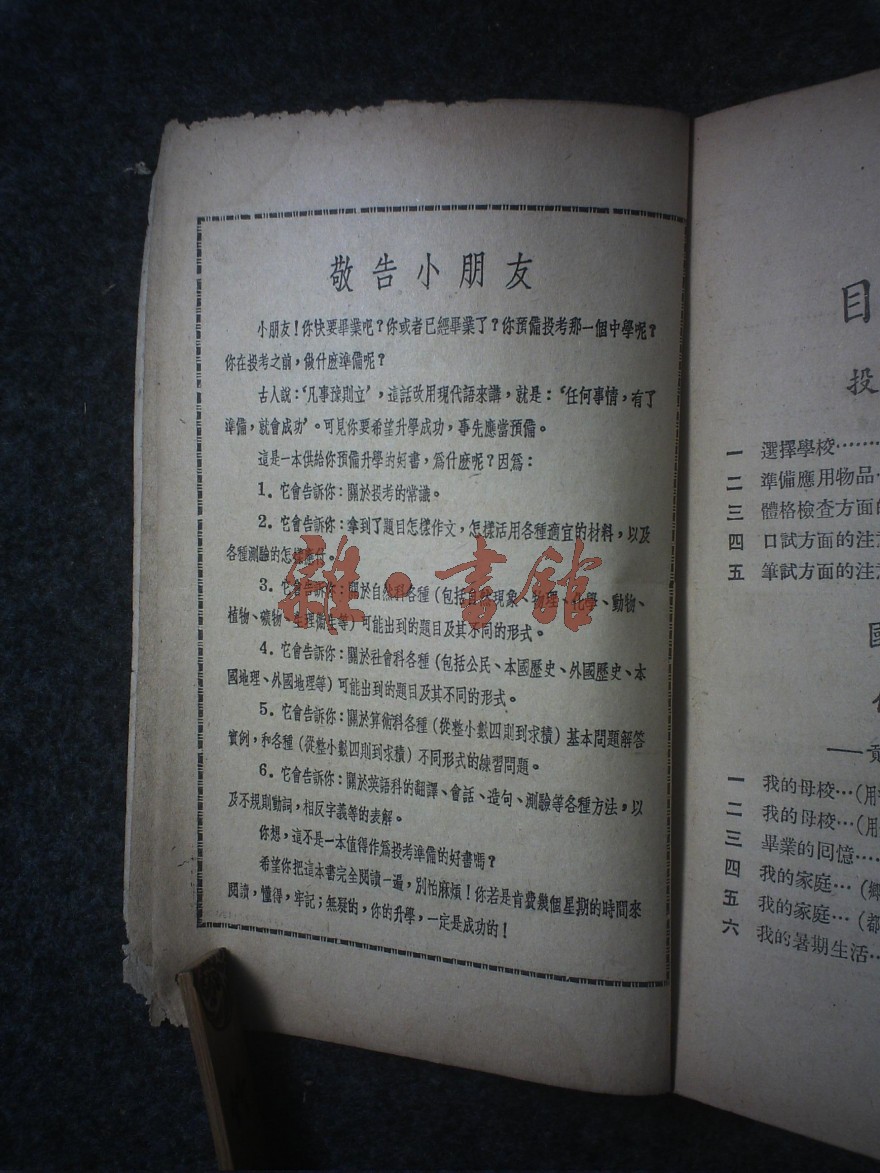 敬告小朋友
小朋友！你快要畢業吧？你或者已經畢業了？你預備投考那一個中學呢？
你在投考之前，做什麽準備呢？
古人說：‘凡事豫則立’，這話改用現代語來講，就是：‘任何事情，有了
準備，就會成功’。可見你要希望升學成功，事先應當預備。
這是一本供給你預備升學的好書，爲什麽呢？因爲：
1. 它會告訴你：關於投考的常識。
2. 它會告訴你：拿到了題目怎樣作文，怎樣活用各種適宜的材料，以及
各種測驗的怎樣應付。
3. 它會告訴你：關於自然科各種（包括自然現象、物理、化學、動物、
植物、礦物、生理衞生等）可能出到的題目及其不同的形式。
4. 它會告訴你：關於社會科各種（包括公民、本國歷史、外國歷史、本
國地理、外國地理等）可能出到的題目及其不同的形式。
5. 它會告訴你：關於算術科各種（從整小數四則到求積）基本問題解答
實例，和各種（從整小數四則到求積）不同形式的練習問題。
6. 它會告訴你：關於英語科的翻譯、會話、造句、測驗等各種方法，以
及不規則動詞，相反字義等的表解。
你想，這不是一本值得作爲投考準備的好書嗎？
希望你把這本書完全閱讀一遍，別怕麻煩！你若是肯費幾個星期的時間來
閱讀，懂得，牢記；無疑的，你的升學，一定是成功的！
雜·書館
目
投
一 選擇學校……
二 準備應用物品…
三 體格檢查方面的
四 口試方面的注意
五 筆試方面的注意
國
一 我的母校…（用
二 我的母校…（用
三 畢業的回憶…
四 我的家庭…（鄉
五 我的家庭…（都
六 我的暑期生活…